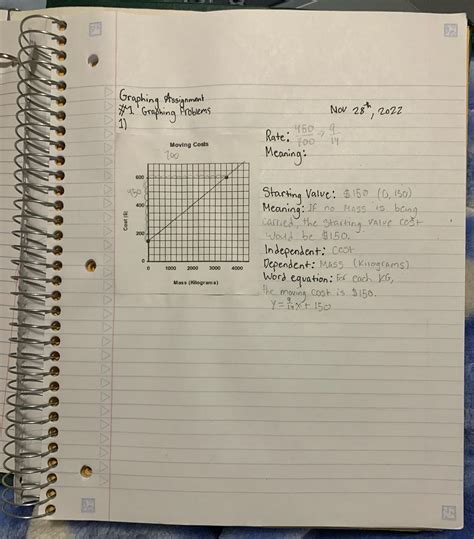 Graphing Assignment
#1 Graphing Problems
Nov 28th, 2022
1)
Moving Costs
700
600
450
400
200
0
Cost ($)
0 1000 2000 3000 4000
Mass (Kilograms)
Rate: 450/700 → 9/14
Meaning:
Starting Value: $150 (0, 150)
Meaning: If no mass is being
carried, the starting value cost
would be $150.
Independent: Cost
Dependent: Mass (Kilograms)
Word equation: For each KG,
the moving cost is $150.
y = 9/14 x + 150